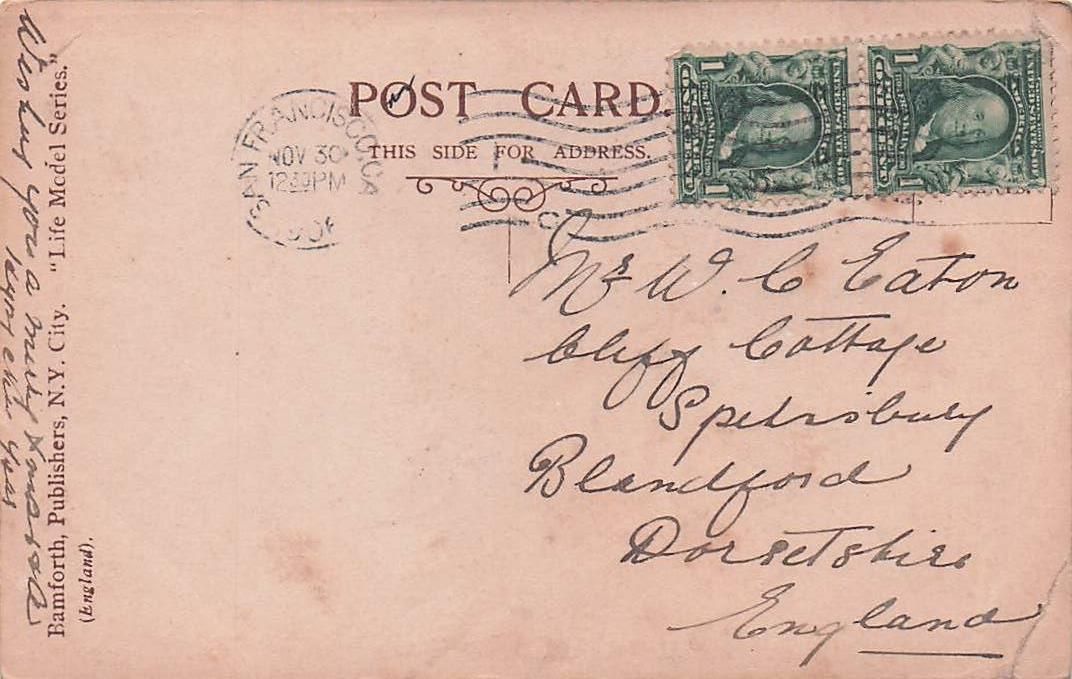 POST CARD.
THIS SIDE FOR ADDRESS.
SAN FRANCISCO, CA
NOV 30
12 30 PM
190
1
1
1
1
Mrs W. C Eaton
Cliff Cottage
Spetisbury
Blandford
Dorsetshire
England
Wishing you a merry Xmas &
happy new year
Bamforth, Publishers, N.Y. City. "Life Model Series."
(England).